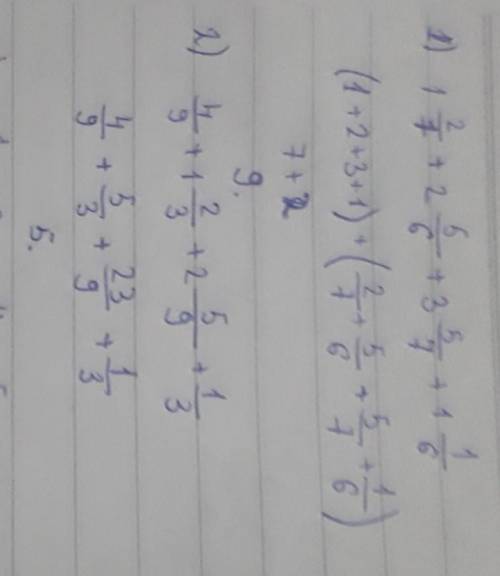 1) 1 2/7 + 2 5/6 + 3 5/7 + 1 1/6
(1+2+3+1) + (2/7 + 5/6 + 5/7 + 1/6)
7+2
9.
2) 4/9 + 1 2/3 + 2 5/9 + 1/3
4/9 + 5/3 + 23/9 + 1/3
5.